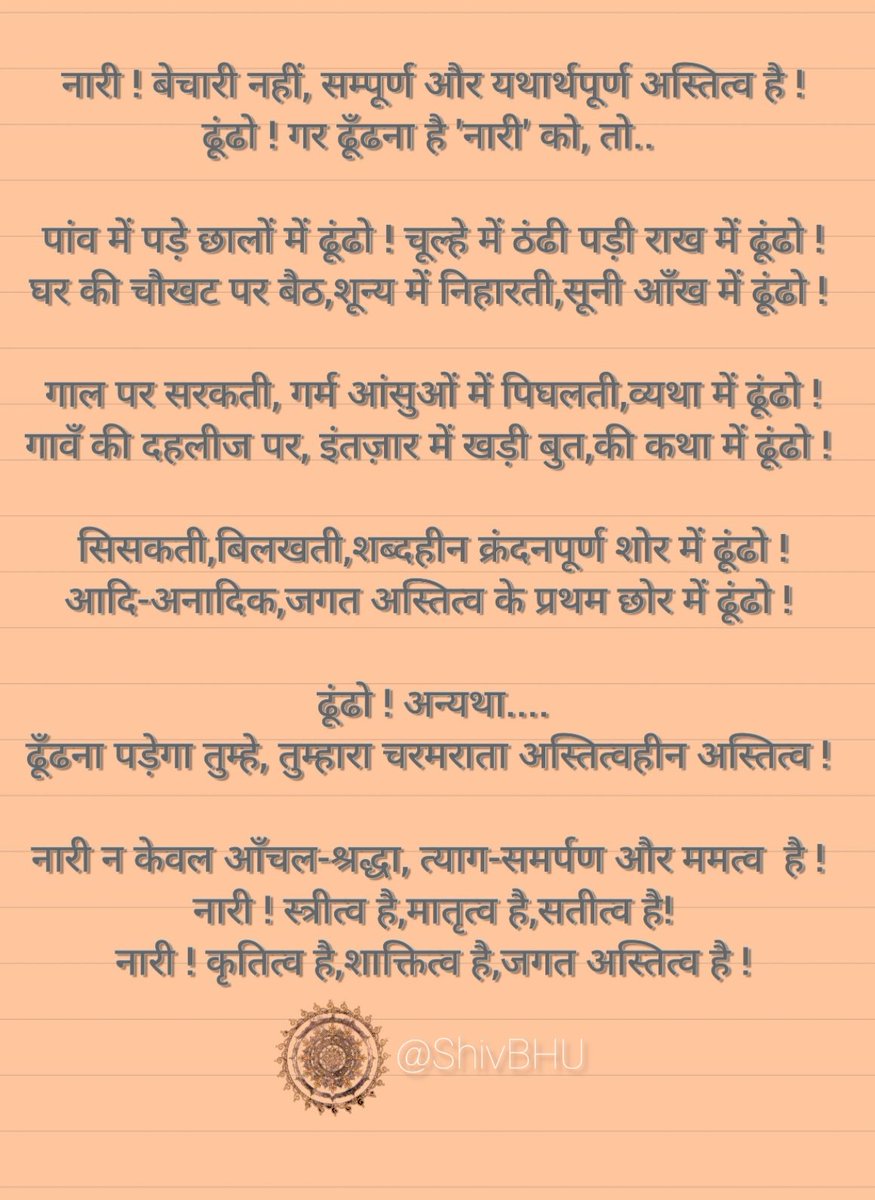 नारी ! बेचारी नहीं, सम्पूर्ण और यथार्थपूर्ण अस्तित्व है !
ढूंढो ! गर ढूँढना है 'नारी' को, तो..
पांव में पड़े छालों में ढूंढो ! चूल्हे में ठंढी पड़ी राख में ढूंढो !
घर की चौखट पर बैठ,शून्य में निहारती,सूनी आँख में ढूंढो !
गाल पर सरकती, गर्म आंसुओं में पिघलती,व्यथा में ढूंढो !
गावँ की दहलीज पर, इंतज़ार में खड़ी बुत,की कथा में ढूंढो !
सिसकती,बिलखती,शब्दहीन क्रंदनपूर्ण शोर में ढूंढो !
आदि-अनादिक,जगत अस्तित्व के प्रथम छोर में ढूंढो !
ढूंढो ! अन्यथा....
ढूँढना पड़ेगा तुम्हे, तुम्हारा चरमराता अस्तित्वहीन अस्तित्व !
नारी न केवल आँचल-श्रद्धा, त्याग-समर्पण और ममत्व है !
नारी ! स्त्रीत्व है,मातृत्व है,सतीत्व है!
नारी ! कृतित्व है,शाक्तित्व है,जगत अस्तित्व है !
@ShivBHU